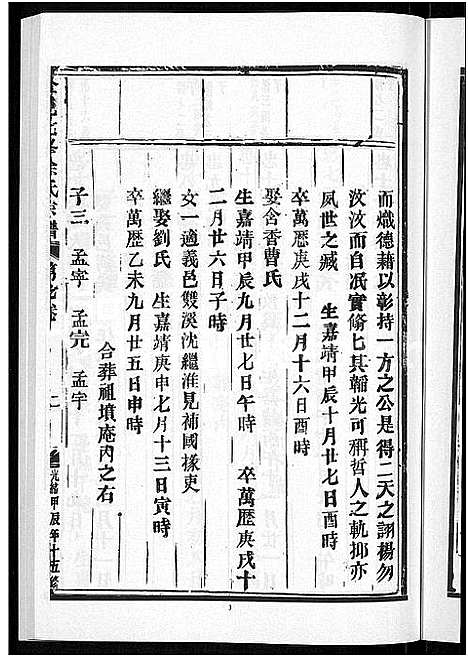 而熾德藉以彰持一方之公是得二天之詡揚勿
汶汶而自冺實脩匕其韜光可稱哲人之軌抑亦
夙世之臧　生嘉靖甲辰十月廿七日酉時
卒萬歷庚戌十二月十六日酉時
娶舍香曹氏
生嘉靖甲辰九月廿七日午時　卒萬歷庚戌十
二月廿六日子時
女一適義邑雙溪沈繼淮見補國掾吏
繼娶劉氏　生嘉靖庚申七月十三日寅時
卒萬歷乙未九月廿五日申時
合葬祖墳庵內之右
子三　孟寧　孟完　孟宇
氏宗譜　第
光緒甲辰年十五修